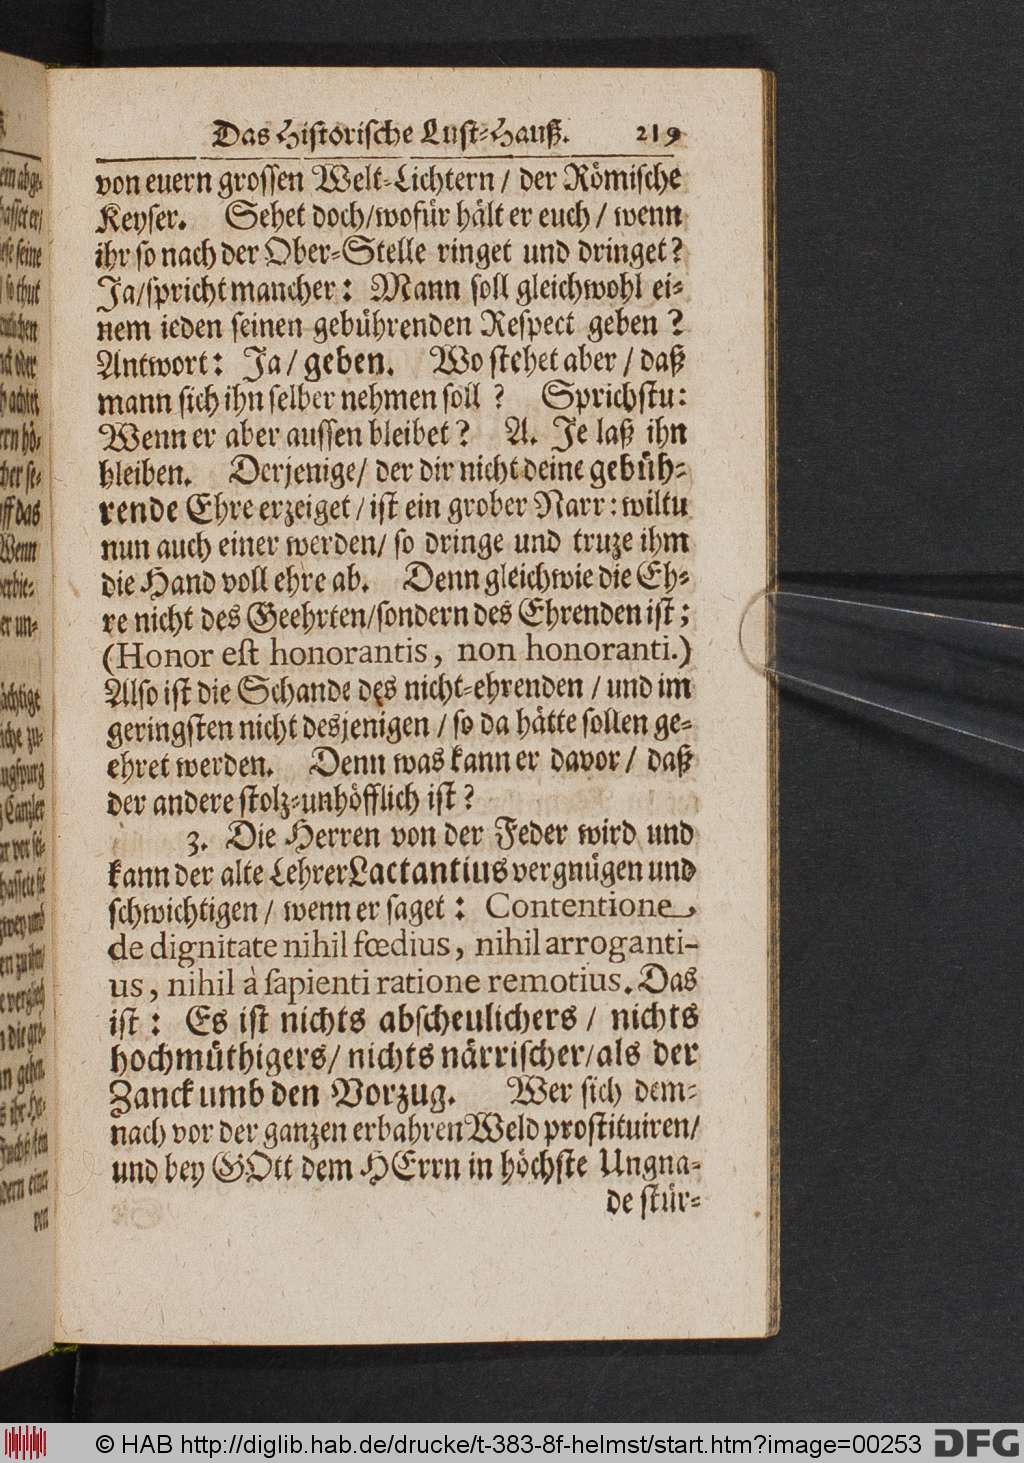 Das Historische Lust-Hauß. 219
von euern grossen Welt-Lichtern / der Römische
Keyser. Sehet doch/wofür hält er euch / wenn
ihr so nach der Ober-Stelle ringet und dringet?
Ja/spricht mancher: Mann soll gleichwohl ei-
nem ieden seinen gebührenden Respect geben?
Antwort: Ja/ geben. Wo stehet aber / daß
mann sich ihn selber nehmen soll? Sprichstu:
Wenn er aber aussen bleibet? A. Je laß ihn
bleiben. Derjenige/ der dir nicht deine gebüh-
rende Ehre erzeiget / ist ein grober Narr: wiltu
nun auch einer werden/ so dringe und truze ihm
die Hand voll ehre ab. Denn gleichwie die Eh-
re nicht des Geehrten/sondern des Ehrenden ist;
(Honor est honorantis, non honoranti.)
Also ist die Schande des nicht-ehrenden / und im
geringsten nicht desjenigen / so da hätte sollen ge-
ehret werden. Denn was kann er davor / daß
der andere stolz-unhöfflich ist?
3. Die Herren von der Feder wird und
kann der alte Lehrer Lactantius vergnügen und
schwichtigen / wenn er saget: Contentione
de dignitate nihil fœdius, nihil arroganti-
us, nihil à sapienti ratione remotius. Das
ist: Es ist nichts abscheulichers / nichts
hochmüthigers/ nichts närrischer/als der
Zanck umb den Vorzug. Wer sich dem-
nach vor der ganzen erbahren Weld prostituiren/
und bey GOtt dem HErrn in höchste Ungna-
de stür-
ein abge-
hasset er/
seine
so thut
oder
achtet
ern hö-
her se-
uff das
Wenn
erbie-
er un-
ächtige
zu-
Cantzler
von
© HAB http://diglib.hab.de/drucke/t-383-8f-helmst/start.htm?image=00253
DFG